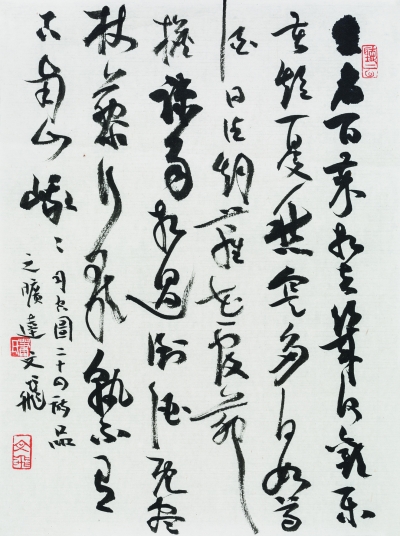 生者百歲相去幾何歡樂
苦短憂愁實多何如尊
酒日往烟蘿花覆茅
檐疎雨相過倒酒既盡
杖藜行歌孰不有
古南山峨
〻司空圖二十四詩品
之曠達文飛